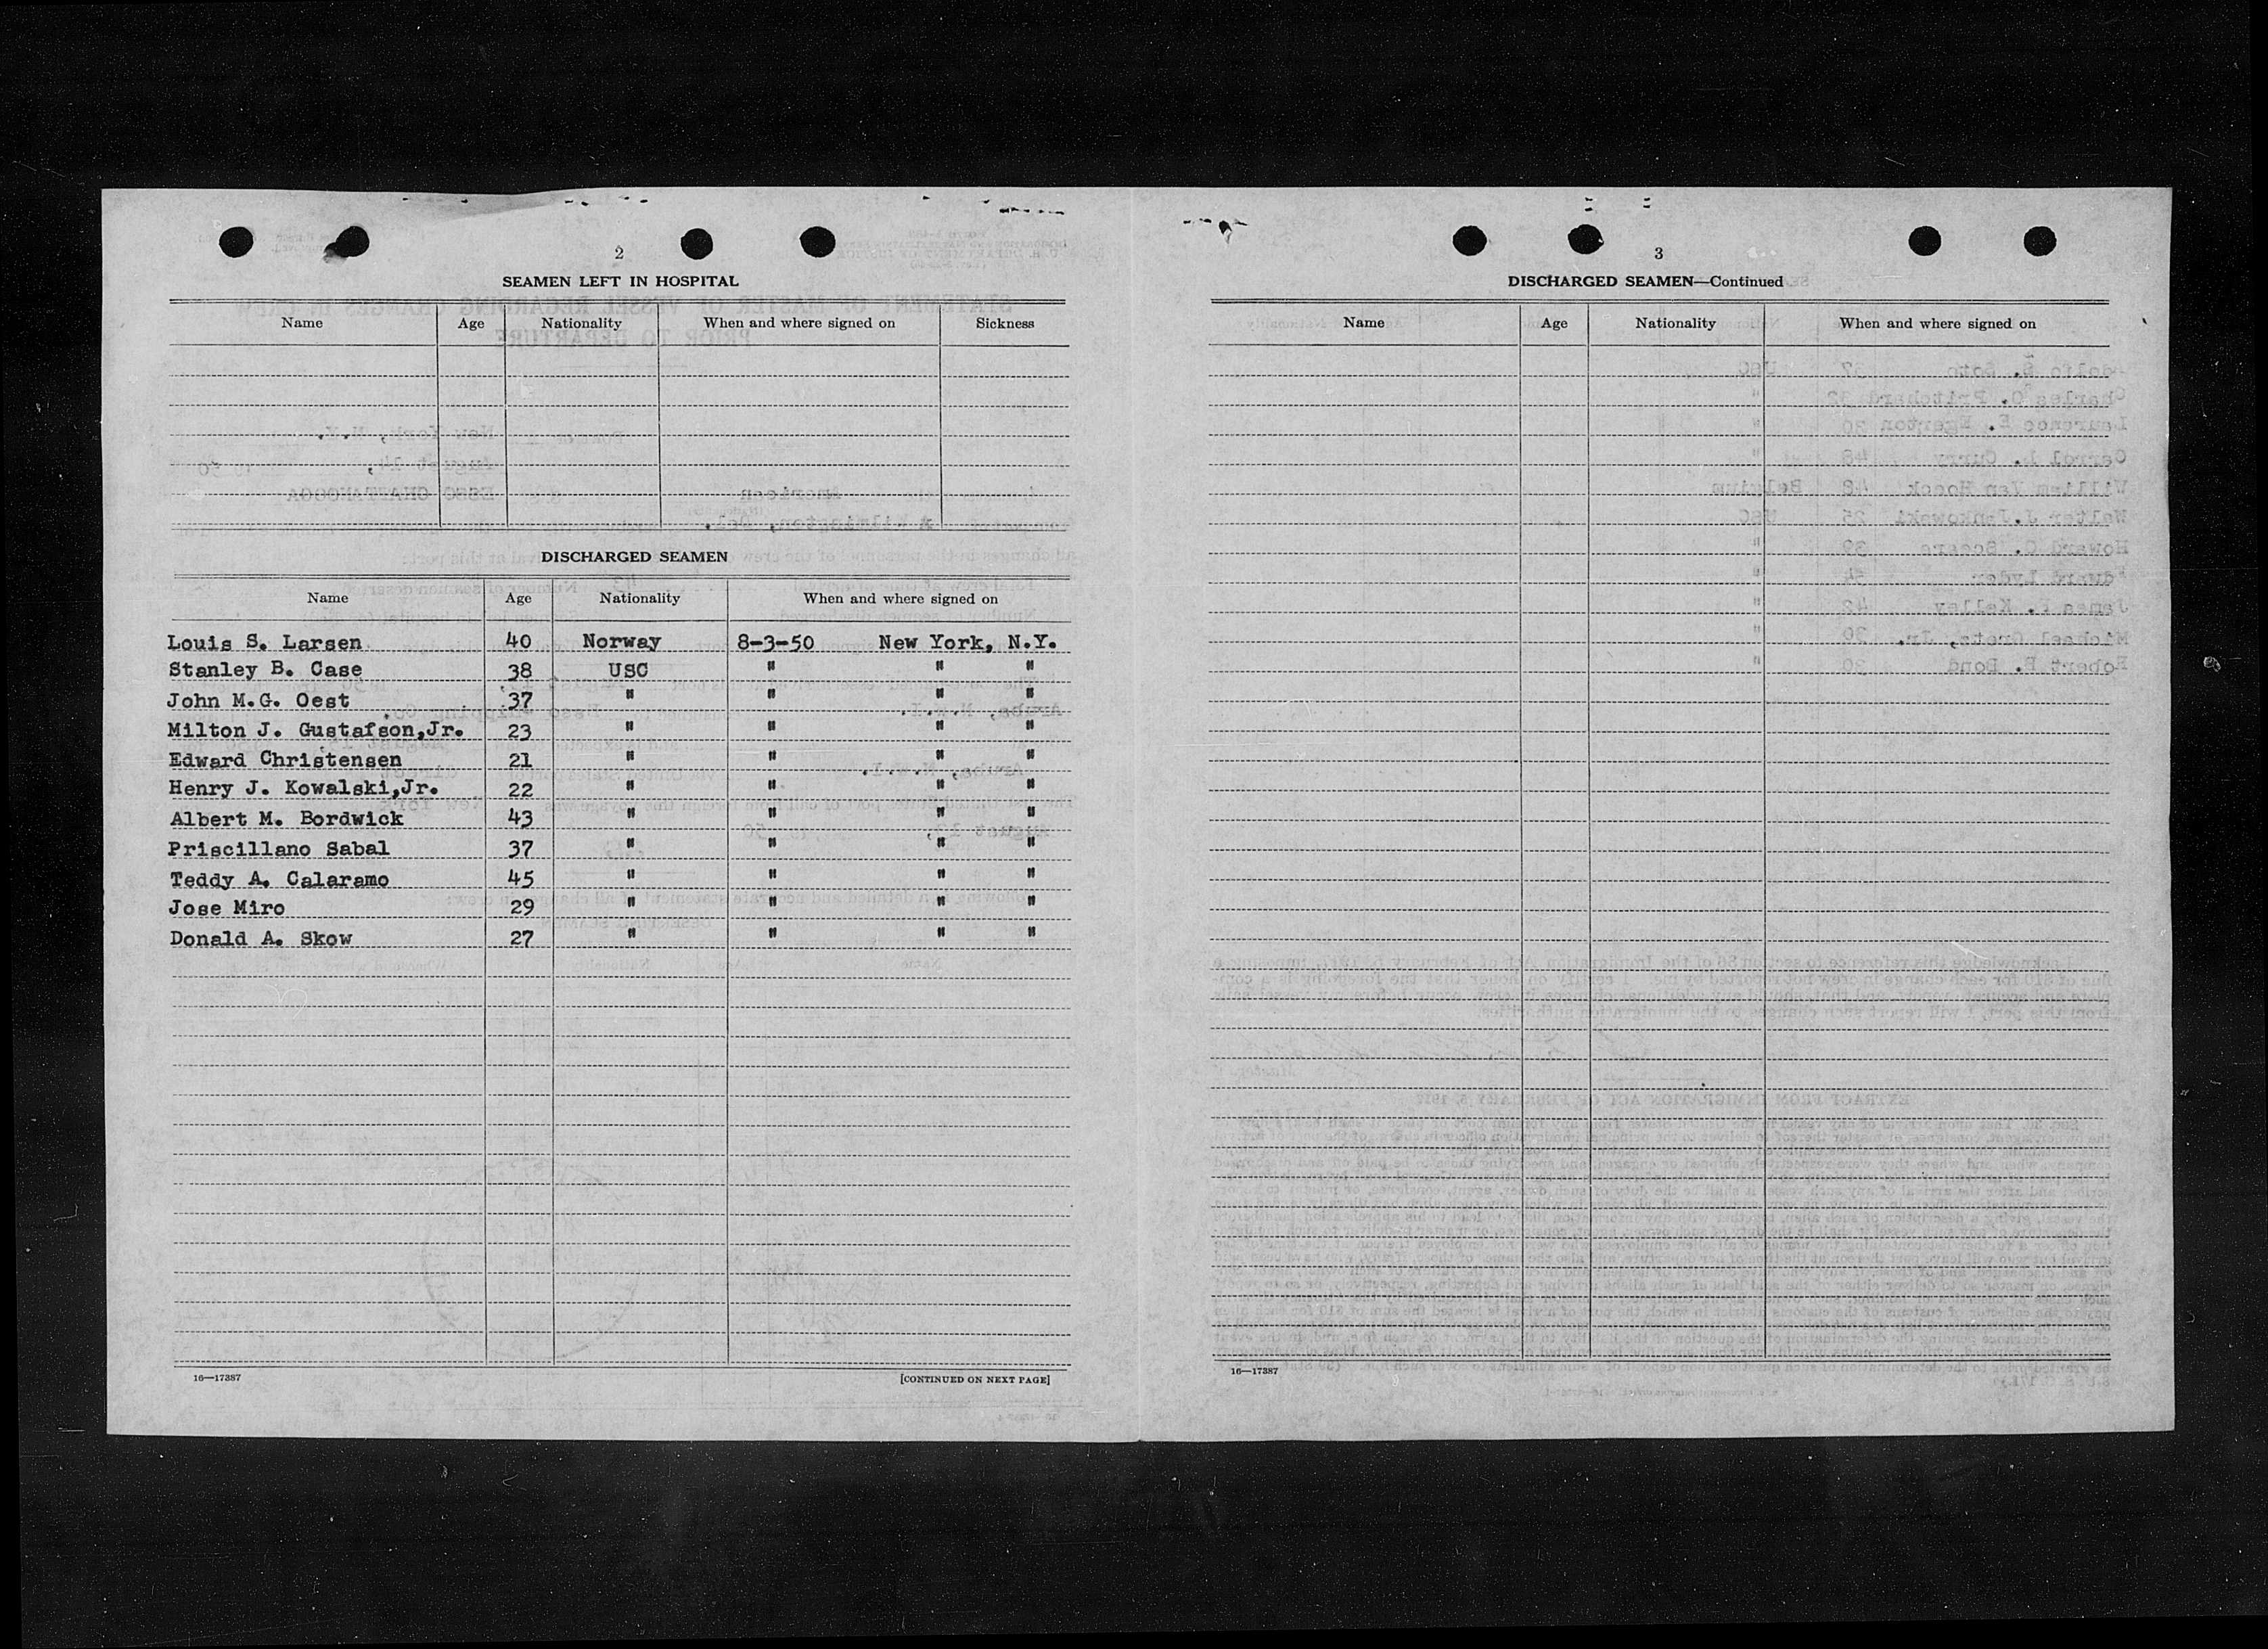 2
SEAMEN LEFT IN HOSPITAL
Name Age Nationality When and where signed on Sickness
DISCHARGED SEAMEN
Name Age Nationality When and where signed on
Louis S. Larsen 40 Norway 8-3-50 New York, N.Y.
Stanley B. Case 38 USC " " "
John M.G. Oest 37 " " " "
Milton J. Gustafson,Jr. 23 " " " "
Edward Christensen 21 " " " "
Henry J. Kowalski,Jr. 22 " " " "
Albert M. Bordwick 43 " " " "
Priscillano Sabal 37 " " " "
Teddy A. Calaramo 45 " " " "
Jose Miro 29 " " " "
Donald A. Skow 27 " " " "
16—17387 [CONTINUED ON NEXT PAGE]
3
DISCHARGED SEAMEN—Continued
Name Age Nationality When and where signed on
16—17387